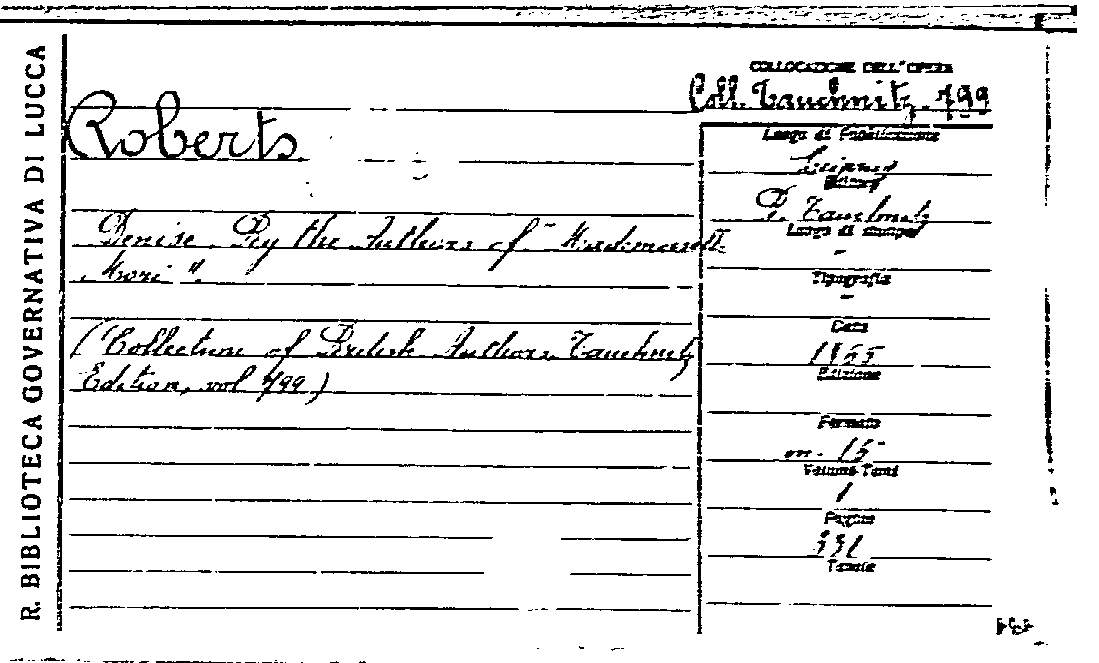 R. BIBLIOTECA GOVERNATIVA DI LUCCA
COLLOCAZIONE DELL'OPERA
Coll. Tauchnitz. 799
Roberts
Luogo di Pubblicazione
Editore
B. Tauchnitz
Luogo di stampa
-
Denise. By the Authors of "Mademoiselle
Mori".
Tipografia
-
Data
(Collection of British Authors. Tauchnitz
Edition, vol 799)
Edizione
Formato
m. 15
Volumi-Tomi
1
Pagine
Tavole